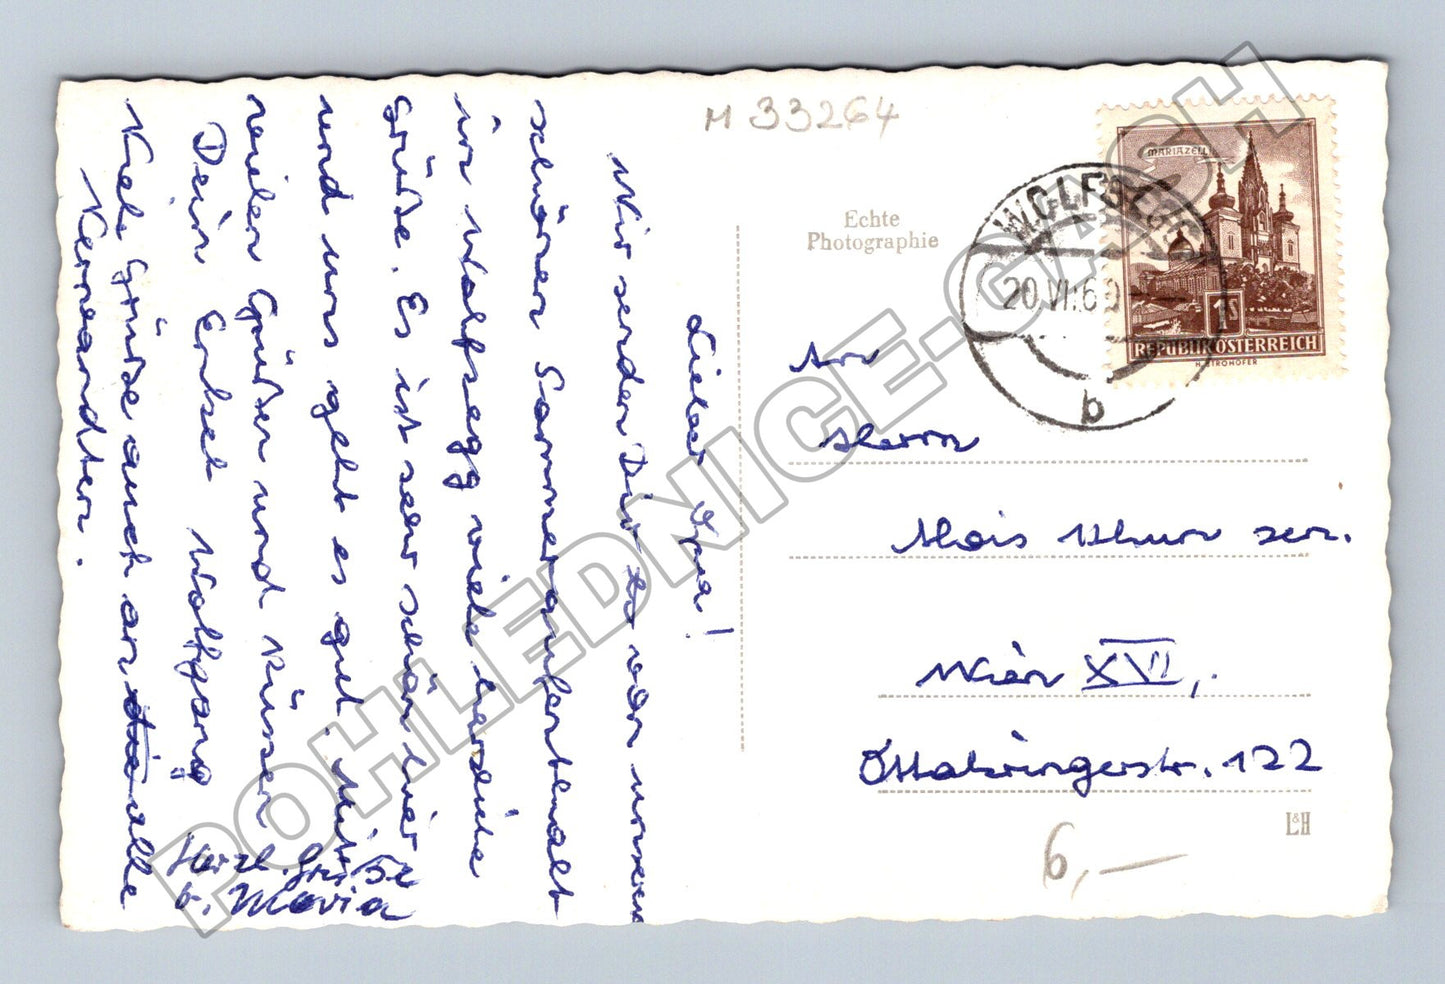 M 33264
Echte
Photographie
MARIAZELL
1S
REPUBLIK ÖSTERREICH
H. STROHOFER
WOLFSEGG
20.VI:60
b
An
Herrn
Alois sen.
Wien XVI,
Ottakringerstr. 122
L&H
6,—
Lieber Opa!
Wir senden Dir von unserem
schönen Sommeraufenthalt
in Wolfsegg viele herzliche
Grüße. Es ist sehr schön hier
und uns geht es gut. Mit
vielen Grüßen und Küssen
Dein Enkel Wolfgang
Viele Grüße auch an alle
Verwandten.
Herzl. Grüße
v. Maria
POHLEDNICE-GASH